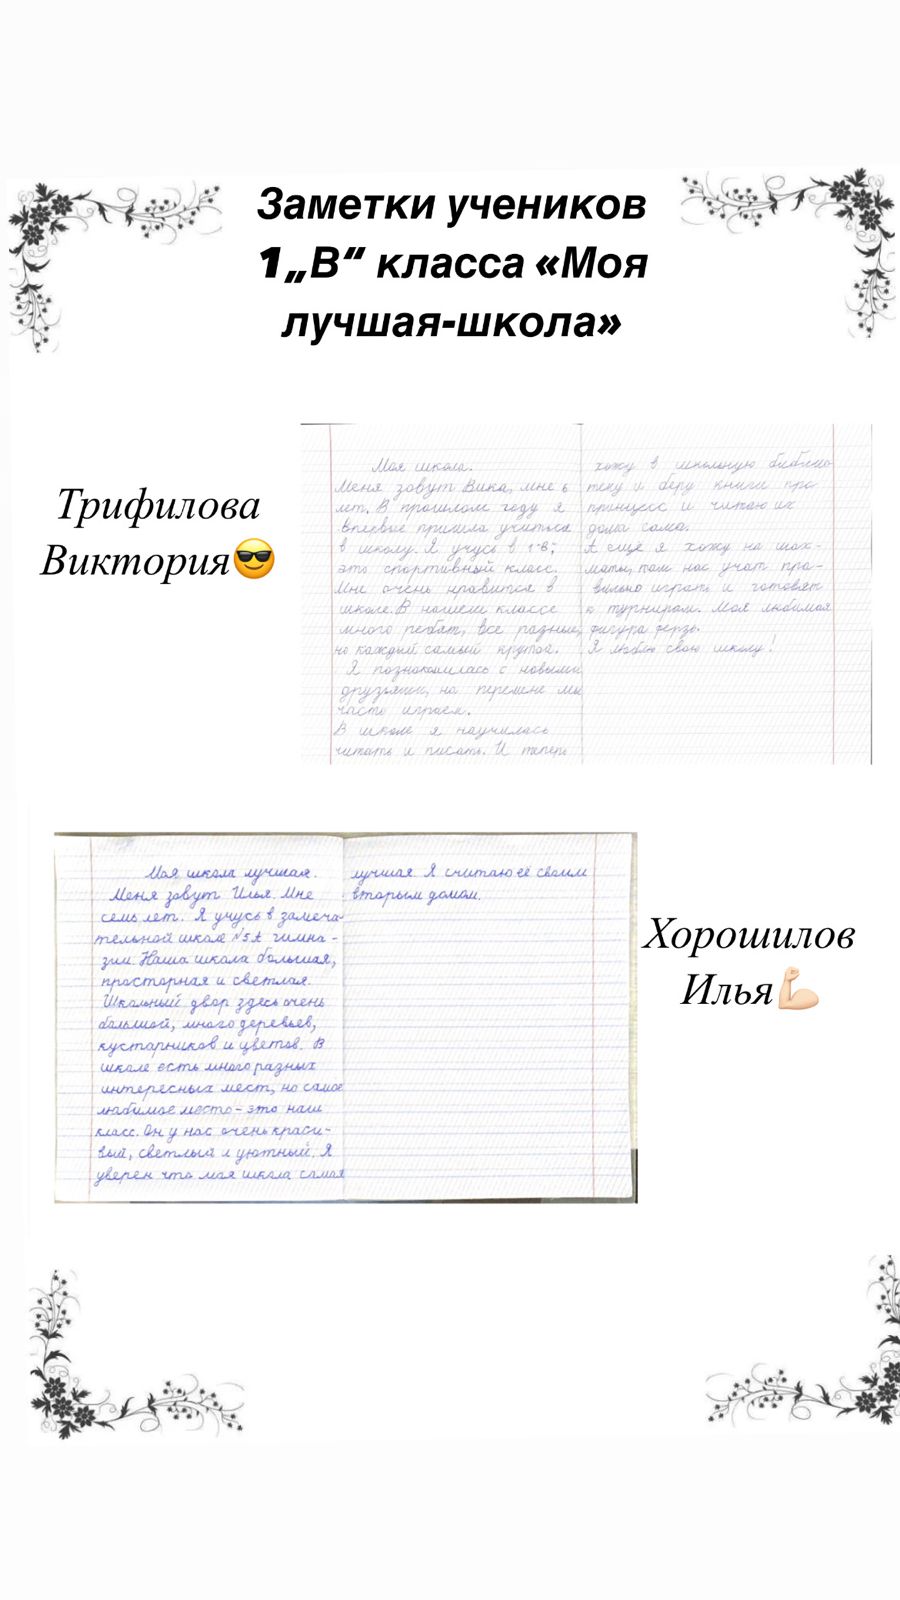 Заметки учеников
1„В“ класса «Моя
лучшая-школа»
Трифилова
Виктория😎
Моя школа.
Меня зовут Вика, мне 6
лет. В прошлом году я
впервые пришла учиться
в школу. Я учусь в 1"В";
это спортивный класс.
Мне очень нравится в
школе. В нашем классе
много ребят, все разные,
но каждый самый крутой.
Я познакомилась с новыми
друзьями, на перемене мы
часто играем.
В школе я научилась
читать и писать. И теперь
хожу в школьную библио
теку и беру книги про
принцесс и читаю их
дома сама.
А ещё я хожу на шах-
маты, там нас учат пра-
вильно играть и готовят
к турнирам. Моя любимая
фигура ферзь.
Я люблю свою школу!
Моя школа лучшая.
Меня зовут Илья. Мне
семь лет. Я учусь в замеча-
тельной школе №5А гимна-
зии. Наша школа большая,
просторная и светлая.
Школьный двор здесь очень
большой, много деревьев,
кустарников и цветов. В
школе есть много разных
интересных мест, но самое
любимое место - это наш
класс. Он у нас очень краси-
вый, светлый и уютный. Я
уверен что моя школа самая
лучшая. Я считаю её своим
вторым домом.
Хорошилов
Илья💪🏻